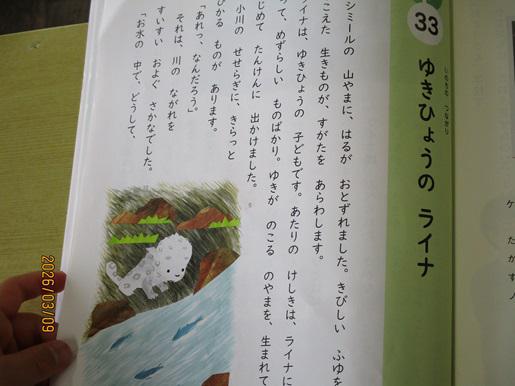 33
いのちの つながり
ゆきひょうの ライナ
シミールの 山やまに、はるが おとずれました。きびしい ふゆを
こえた 生きものが、すがたを あらわします。
ライナは、ゆきひょうの 子どもです。あたりの けしきは、ライナに
って、めずらしい ものばかり。ゆきが のこる のやまを、生まれて
じめて たんけんに 出かけました。
小川の せせらぎに、きらっと
ひかる ものが あります。
「あれっ、なんだろう。」
それは、川の ながれを
すいすい およぐ さかなでした。
「お水の 中で、どうして、
2026/03/09